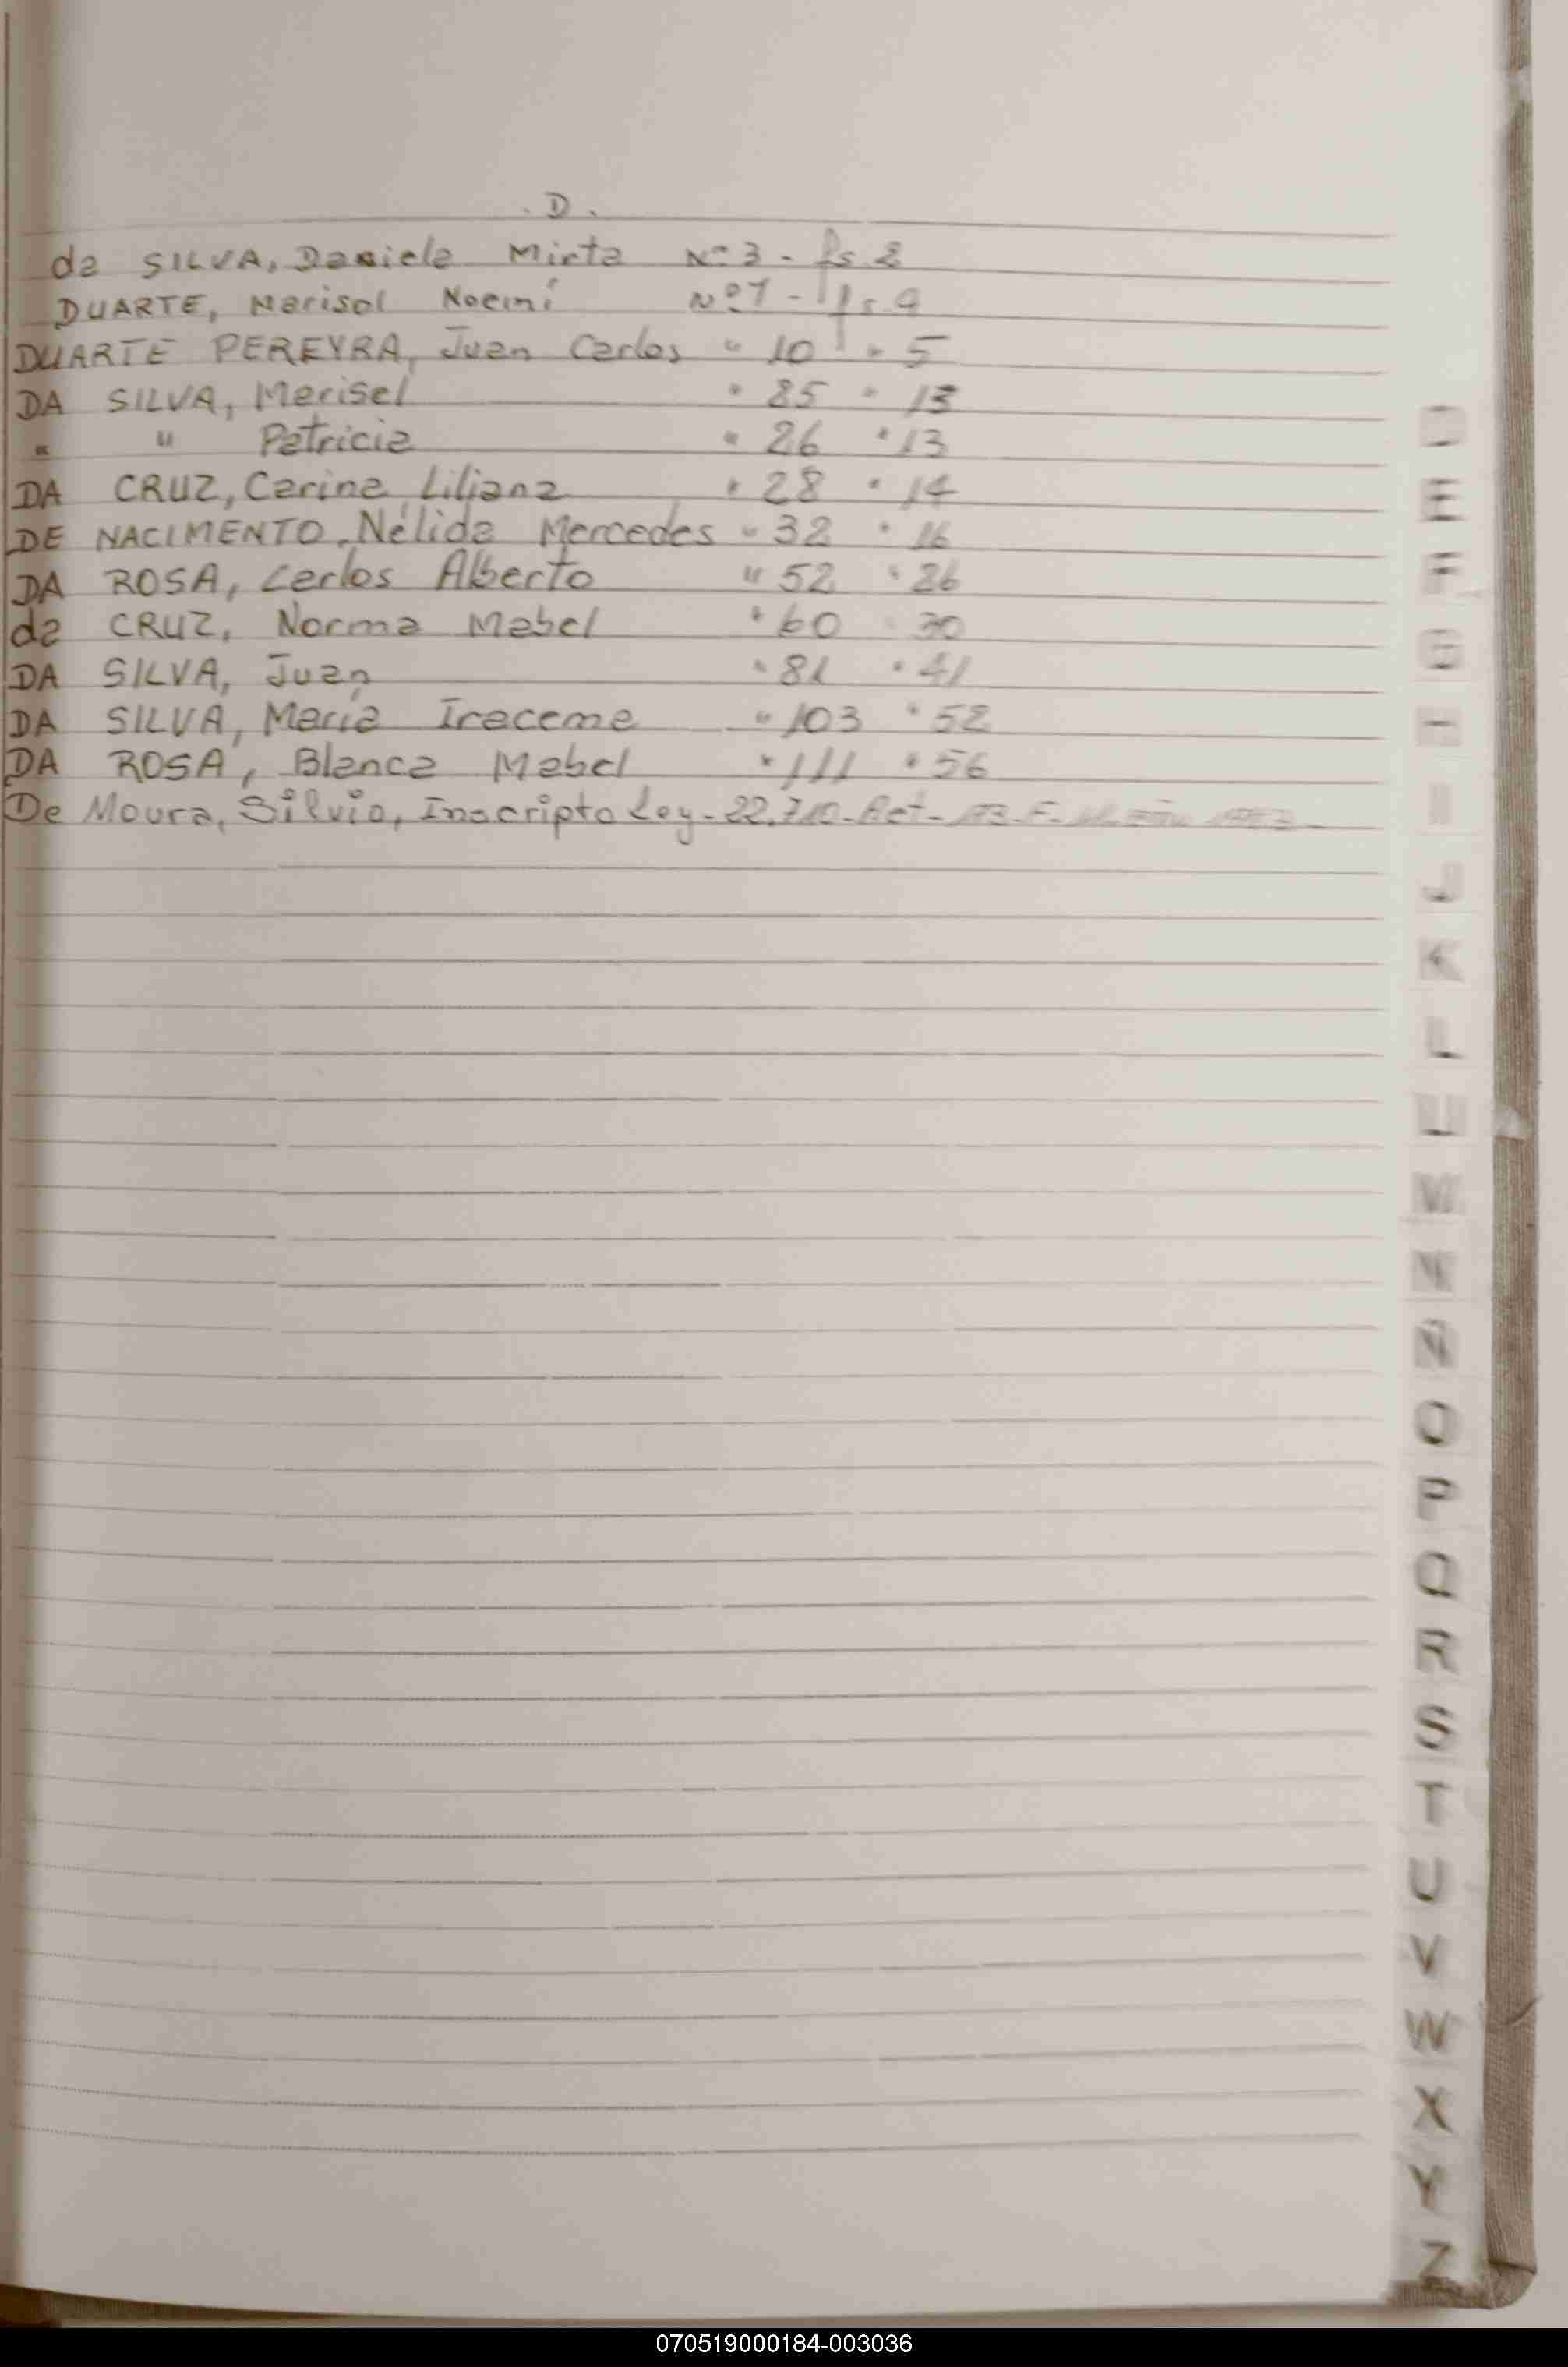 . D .
da SILVA, Daniela Mirta Nº 3 - fs. 2
DUARTE, Marisol Noemí Nº 7 - fs. 4
DUARTE PEREYRA, Juan Carlos " 10 " 5
DA SILVA, Marisel " 25 " 13
" " Patricia " 26 " 13
DA CRUZ, Carina Liliana " 28 " 14
DE NACIMENTO, Nélida Mercedes " 32 " 16
DA ROSA, Carlos Alberto " 52 " 26
da CRUZ, Norma Mabel " 60 " 30
DA SILVA, Juan " 81 " 41
DA SILVA, María Iracema " 103 " 52
DA ROSA, Blanca Mabel " 111 " 56
De Moura, Silvio, Inscripto Ley - 22.710 - Act -
D
E
F
G
H
I
J
K
L
LL
M
N
Ñ
O
P
Q
R
S
T
U
V
W
X
Y
Z
070519000184-003036